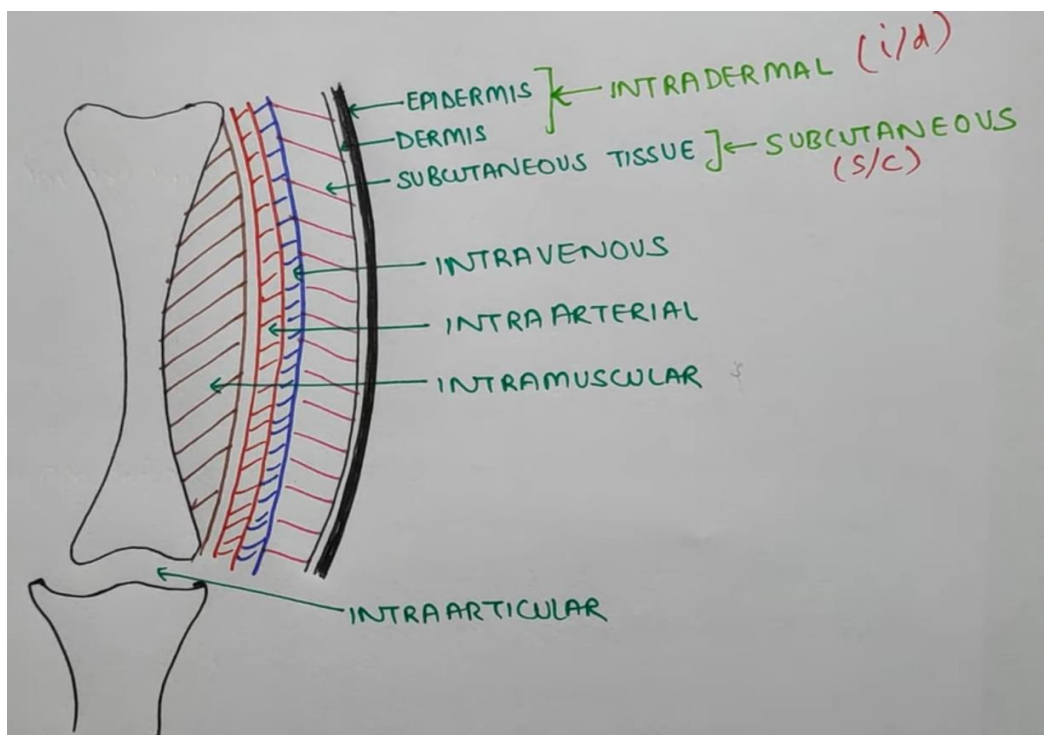 EPIDERMIS ← INTRADERMAL (i/d)
DERMIS
SUBCUTANEOUS TISSUE ← SUBCUTANEOUS
(S/C)
INTRAVENOUS
INTRAARTERIAL
INTRAMUSCULAR
INTRAARTICULAR